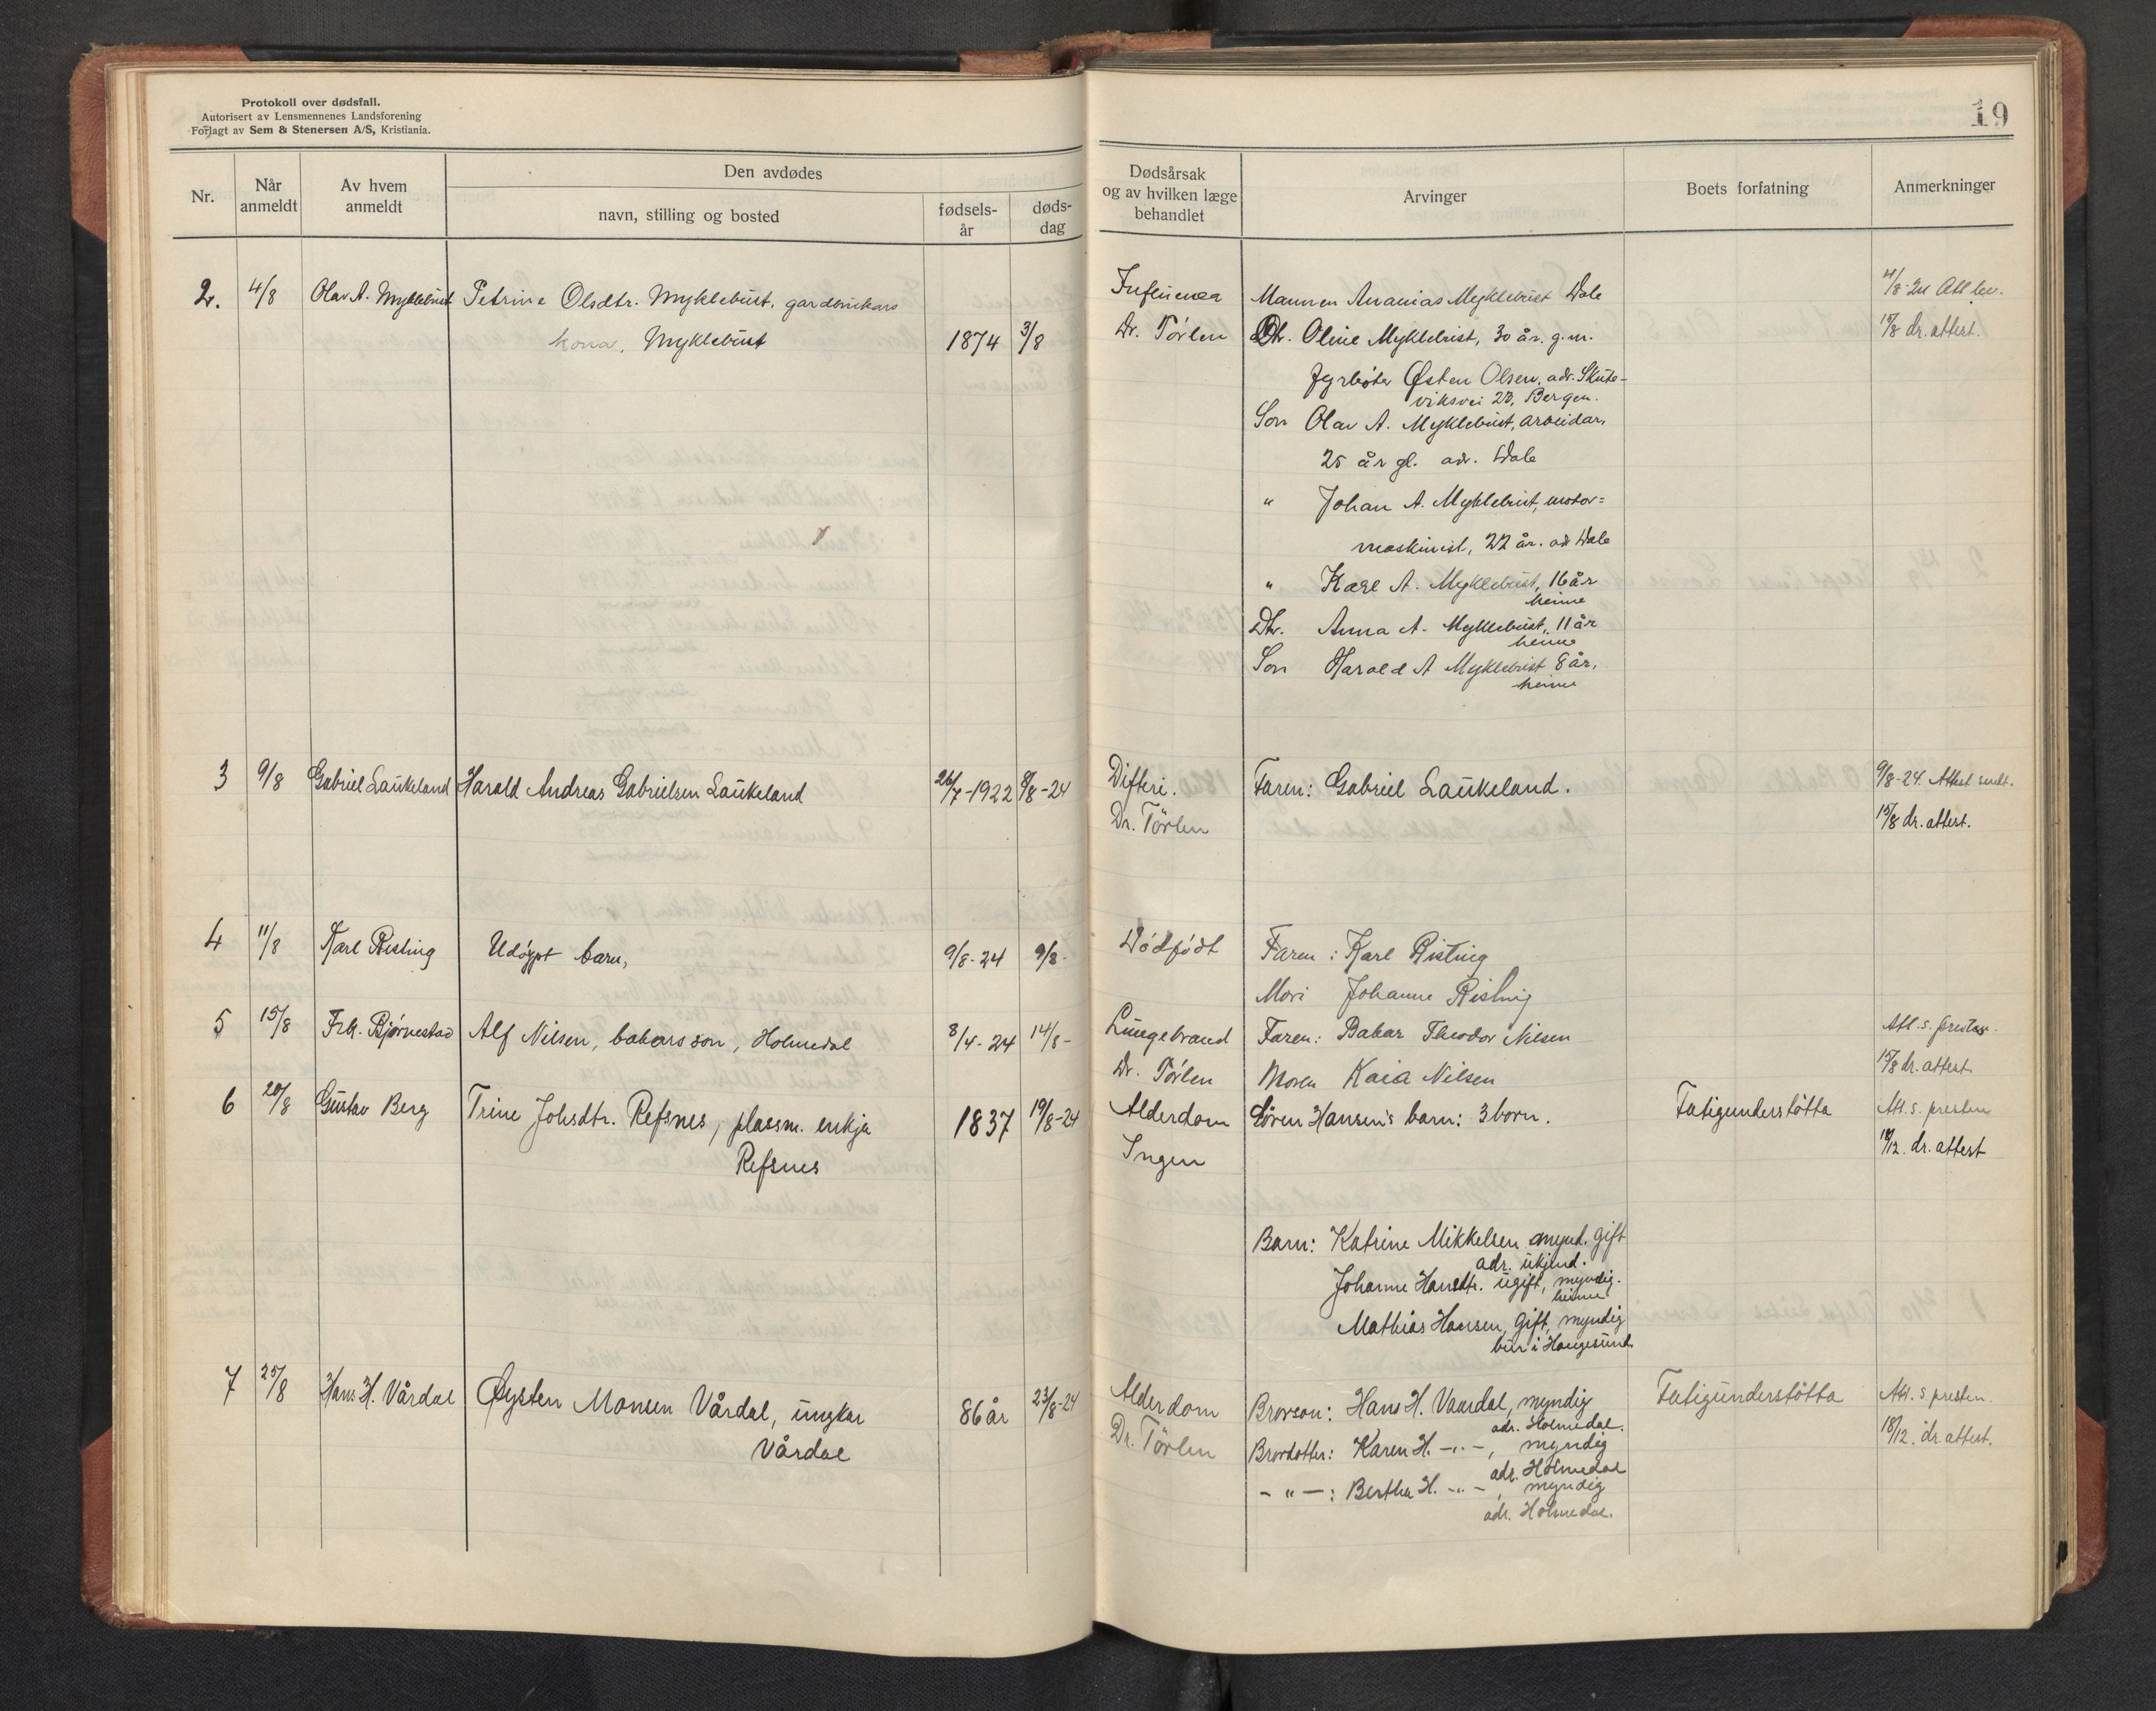 Protokoll over dødsfall.
Autorisert av Lensmennenes Landsforening
Forlagt av Sem & Stenersen A/S, Kristiania.
19
Nr.
Når anmeldt
Av hvem anmeldt
Den avdødes
navn, stilling og bosted
fødsels-år
døds-dag
Dødsårsak og av hvilken læge behandlet
Arvinger
Boets forfatning
Anmerkninger
2. 4/8 Olav A. Myklebust Petrine Olsdtr. Myklebust, gardbrukars
kona, Myklebust 1874 3/8
Influenca Mannen Ananias Myklebust Dale 4/8-24 Att lev.
Dr. Törlen Dtr. Oline Myklebust, 30 år. g.m. 15/8 dr. attest.
fyrbøter Østen Olsen, adr. Skute-
viksvei 23, Bergen.
Son Olav A. Myklebust, arbeidar,
25 år gl. adr. Dale
" Johan A. Myklebust, motor=
maskinist, 22 år. ad Dale
" Karl A. Myklebust, 16 år
heime
Dtr. Anna A. Myklebust, 11 år
heime
Son Harald A Myklebust 8 år,
heime
3 9/8 Gabriel Laukeland Harald Andreas Gabrielsen Laukeland 26/7-1922 8/8-24
Difteri. Faren: Gabriel Laukeland. 9/8-24 Attest sendt.
Dr. Törlen 15/8 dr. attest.
4 11/8 Karl Risting Udöypt barn, 9/8-24 9/8-
Dödfödt Faren: Karl Risting
Mori Johanne Risting
5 15/8 Frk. Bjørnestad Alf Nilsen, bakarsson, Holmedal 8/4-24 14/8-
Lungebrand Faren: Bakar Theodor Nilsen Att. s. presten.
Dr. Törlen Moren Kaia Nilsen 15/8 dr. attest
6 20/8 Gustav Berg Trine Johsdtr. Refsnes, plassm. enkja 1837 19/8-24
Refsnes
Alderdom Sören Hansen's barn: 3 born. Fatigunderstøtta Att. s. presten
Ingen 18/12. dr. attest
Barn: Katrine Mikkelsen mynd. gift
adr. ukjend.
Johanne Hansdtr. ugift, myndig.
heime
Mathias Hansen, gift, myndig
bur i Haugesund.
7 25/8 Hans H. Vårdal Øysten Monsen Vårdal, ungkar 86 år 23/8-24
Vårdal
Alderdom Brorson: Hans H. Vaardal, myndig Fatigunderstøtta Att. s. presten.
adr. Holmedal.
Dr. Törlen Brordotter: Karen H. -"-, myndig 18/12. dr. attest.
adr. Holmedal
- " -: Bertha H. -"-, myndig
adr. Holmedal.